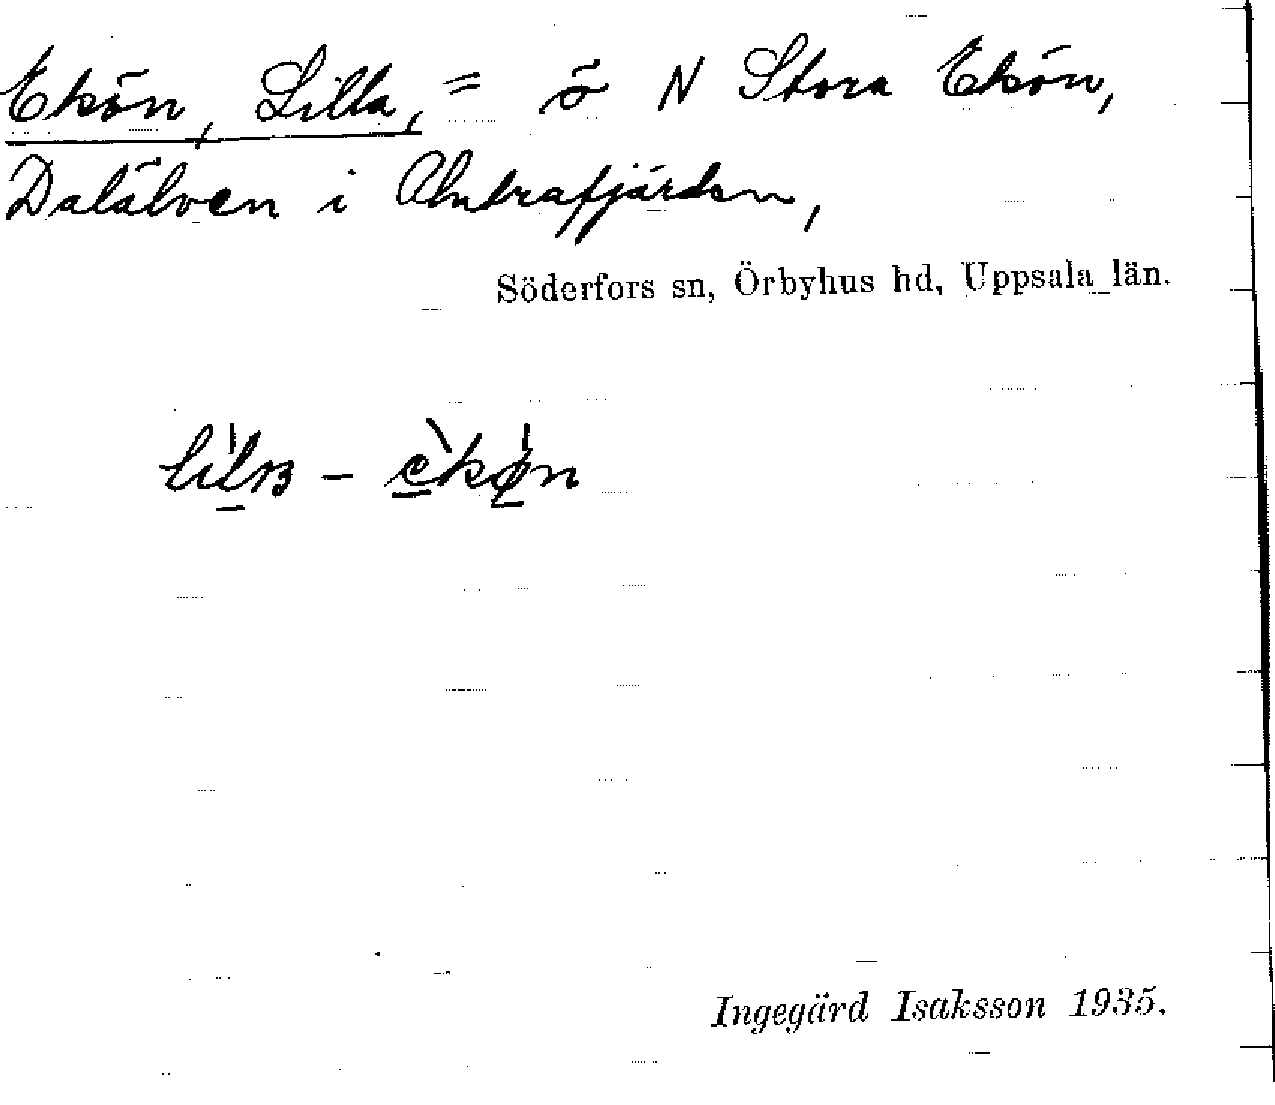 Ekön, Lilla, = ö N Stora Ekön,
Dalälven i Untrafjärden,
Söderfors sn, Örbyhus hd, Uppsala län.
Ingegärd Isaksson 1935.